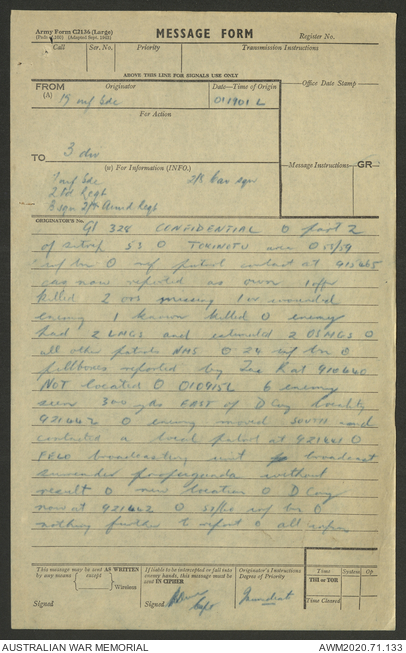 Army Form C2136 (Large)
MESSAGE FORM
Register No.
Call Ser. No. Priority Transmission Instructions
ABOVE THIS LINE FOR SIGNALS USE ONLY
FROM Originator Date—Time of Origin Office Date Stamp
(A) 011901 L
For Action
TO 3 div
(W) For Information (INFO.) Message Instructions GR
2 Fd Regt
ORIGINATOR'S No.
G1 324 CONFIDENTIAL O part 2
of sitrep 53 O TOKINOTU area O 58/59
inf bn O inf patrol contact at 915465
cas now reported as own 1 offr
killed 2 ors missing 1 or wounded
enemy 1 known killed O enemy
had 2 LMGS and estimated 2 OSMGS O
all other patrols NMS O 24 inf bn O
pillboxes reported by Tac R at 910440
NOT located O 010915L 6 enemy
seen 300 yds EAST of D Coy locality
921442 O enemy moved SOUTH and
contacted a local patrol at 921441 O
FELO broadcasting unit broadcast
surrender propaganda without
result O new location O D Coy
now at 921442 O inf bn O
nothing further to report O all
This message may be sent AS WRITTEN
by any means { except }
Wireless
Signed
If liable to be intercepted or fall into
enemy hands, this message must be
sent IN CIPHER.
Signed Capt
Originator's Instructions
Degree of Priority
Time System Op
THI or TOR
Time Cleared
AUSTRALIAN WAR MEMORIAL AWM2020.71.133